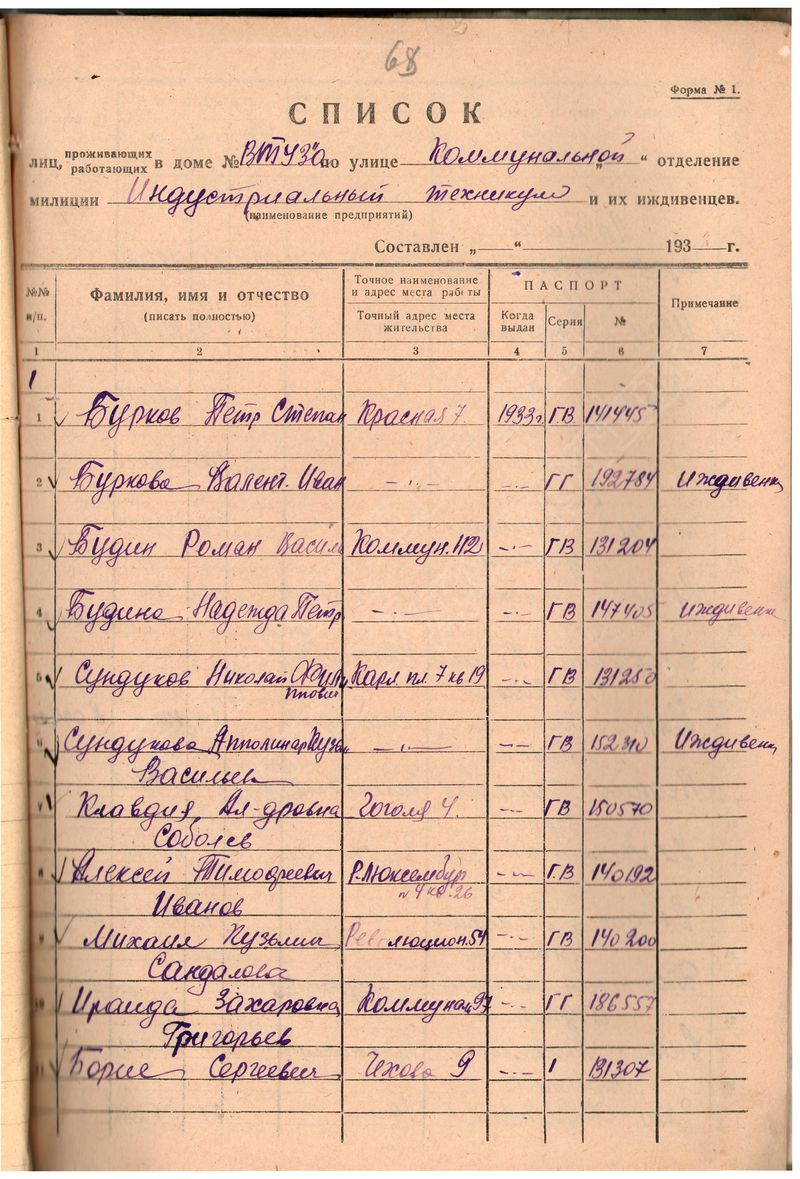 68
Форма № 1.
СПИСОК
лиц, проживающих работающих в доме № ВТУЗ'а по улице Коммунальной “ отделение
милиции Индустриальный техникум и их иждивенцев.
(наименование предприятий)
Составлен „ “ 193 г.
№№ п/п. Фамилия, имя и отчество (писать полностью) Точное наименование и адрес места работы ПАСПОРТ Примечание
Точный адрес места жительства Когда выдан Серия №
1 2 3 4 5 6 7
1
1 Бурков Петр Степан Красная 7. 1933г. ГВ 141445
2 Буркова Валент. Иван -"- -"- ГГ 192784 Иждивенц
3 Будин Роман Василь Коммун. 112 -"- ГВ 131204
4 Будина Надежда Петр -"- -"- ГВ 147405 Иждивенц
5 Сундуков Николай Филиппович Карл. пл. 7 кв 19 -"- ГВ 131250
6 Сундукова Апполинар Кузьм -"- -"- ГВ 152310 Иждивенц
Васильев
7 Клавдия Ал-дровна Гоголя 4. -"- ГВ 150570
Соболев
8 Алексей Тимофеевич Р. Люксембург -"- ГВ 140192
4 кв. 26
Иванов
9 Михаил Кузьмич Революцион. 54 -"- ГВ 140200
Сандалова
10 Ираида Захаровна Коммунал 97 -"- ГГ 186557
Григорьев
11 Борис Сергеевич Чехова 9 -"- 1 131307